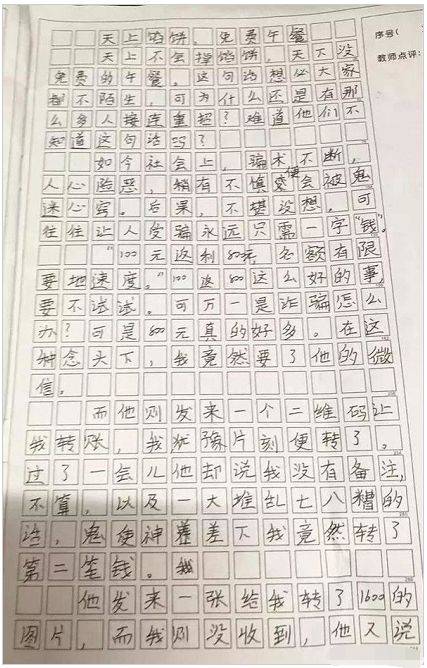 序号(
教师点评:
天上馅饼，免费午餐
天上不会掉馅饼，天下没
免费的午餐。这句话想必大家
都不陌生，可为什么还是有那
么多人接连重蹈？难道他们不
知道这句话吗？
如今社会上，骗术不断，
人心险恶，稍有不慎便会被鬼
迷心窍。后果，不堪设想，可
往往让人受骗永远只需一字“钱”。
“100元返利800元，名额有限
要地速度。”100返800这么好的事，
要不试试。可万一是诈骗怎么
办？可是800元真的好多。在这
种念头下，我竟然要了他的微
信。
而他则发来一个二维码让
我转账，我犹豫片刻便转了。
过了一会儿他却说我没有备注，
不算，以及一大堆乱七八糟的
话，鬼使神差差下我竟然转了
第二笔钱。我
他发来一张给我转了1600的
图片，而我则没收到，他又说